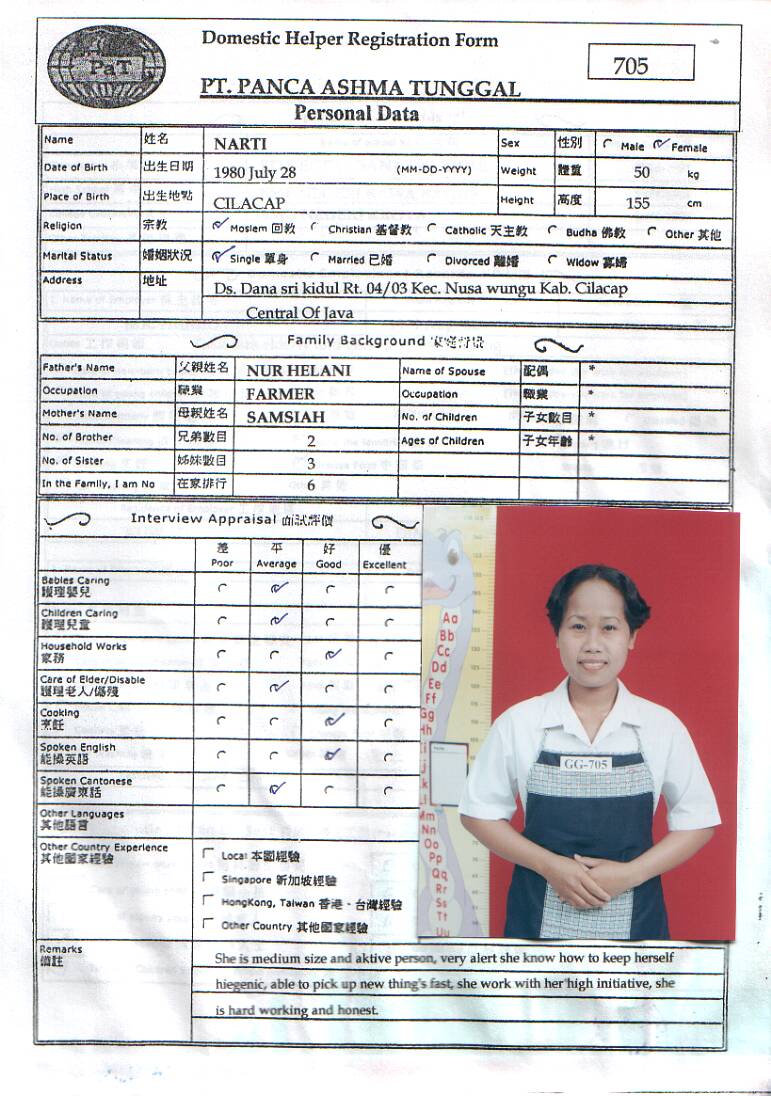 PaT
Domestic Helper Registration Form
705
PT. PANCA ASHMA TUNGGAL
Personal Data
Name 姓名 NARTI Sex 性別 Male Female
Date of Birth 出生日期 1980 July 28 (MM-DD-YYYY) Weight 體重 50 kg
Place of Birth 出生地點 CILACAP Height 高度 155 cm
Religion 宗教 Moslem 回教 Christian 基督教 Catholic 天主教 Budha 佛教 Other 其他
Marital Status 婚姻狀況 Single 單身 Married 已婚 Divorced 離婚 Widow 寡婦
Address 地址 Ds. Dana sri kidul Rt. 04/03 Kec. Nusa wungu Kab. Cilacap
Central Of Java
Family Background 家庭背景
Father's Name 父親姓名 NUR HELANI Name of Spouse 配偶 *
Occupation 職業 FARMER Occupation 職業 *
Mother's Name 母親姓名 SAMSIAH No. of Children 子女數目 *
No. of Brother 兄弟數目 2 Ages of Children 子女年齡 *
No. of Sister 姊妹數目 3
In the Family, I am No 在家排行 6
Interview Appraisal 面試評價
差 平 好 優
Poor Average Good Excellent
Babies Caring
護理嬰兒
Children Caring
護理兒童
Household Works
家務
Care of Elder/Disable
護理老人/傷殘
Cooking
烹飪
Spoken English
能操英語
Spoken Cantonese
能操廣東話
Other Languages
其他語言
Other Country Experience
其他國家經驗
Local 本國經驗
Singapore 新加坡經驗
HongKong, Taiwan 香港、台灣經驗
Other Country 其他國家經驗
Aa
Bb
Cc
Dd
Ee
Ff
Gg
Hh
Ii
Jj
Kk
Ll
Mm
Nn
Oo
Pp
Qq
Rr
Ss
Tt
Uu
GG-705
Remarks
備註
She is medium size and aktive person, very alert she know how to keep herself
hiegenic, able to pick up new thing's fast, she work with her high initiative, she
is hard working and honest.